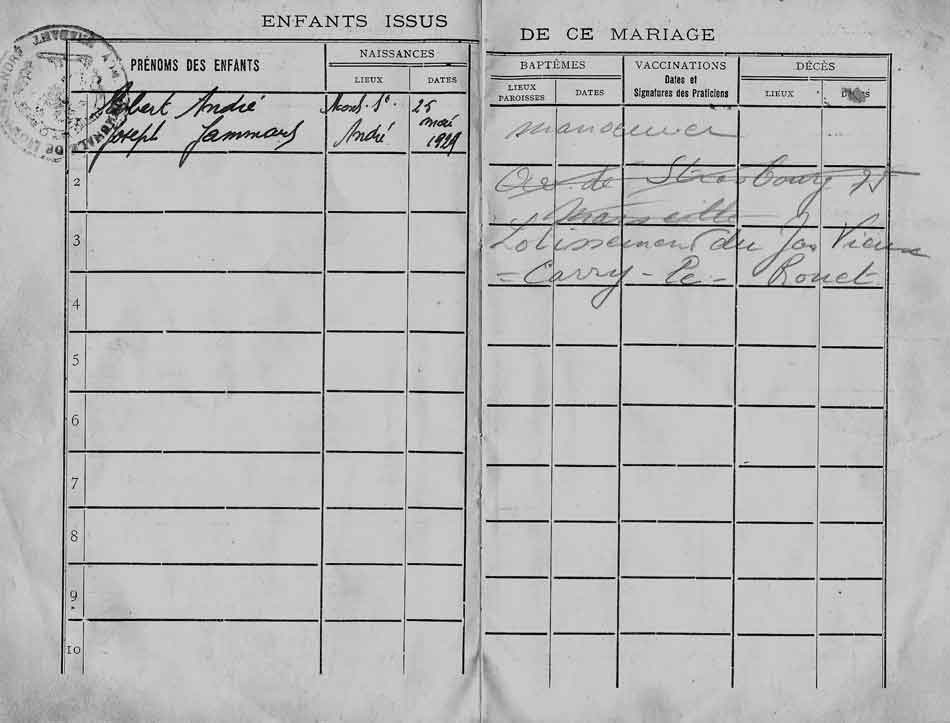 ENFANTS ISSUS
DE CE MARIAGE
PRÉNOMS DES ENFANTS
NAISSANCES
LIEUX
DATES
BAPTÊMES
LIEUX
PAROISSES
DATES
VACCINATIONS
Dates et
Signatures des Praticiens
DÉCÈS
LIEUX
DATES
Robert André
Joseph Jammard
St
André
25
mai
1929
manoeuvre
de Strasbourg 75
Marseille
Lotissement du Jas Vieux
= Carry - Le - Rouet
2
3
4
5
6
7
8
9
10